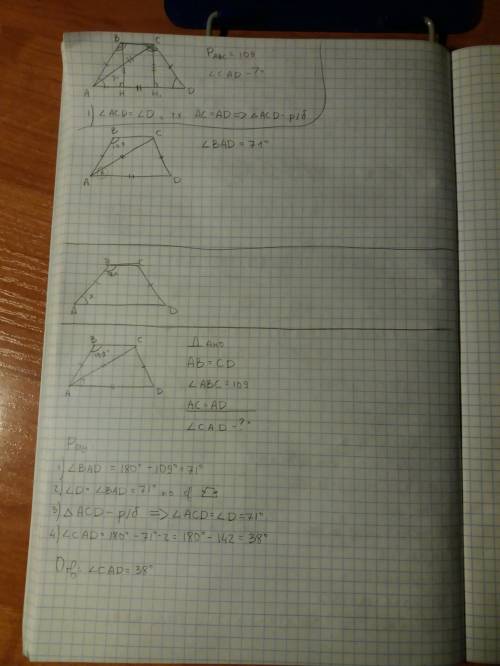 B C
P ABC = 109
∠CAD - ?
A H H₁ D
1) ∠ACD = ∠D, т.к. AC = AD => △ACD - р/б
B C
109
∠BAD = 71°
A D
B C
A D
B C
109°
A D
Дано
AB = CD
∠ABC = 109
AC = AD
∠CAD - ?
1) ∠BAD = 180° - 109° = 71°
2) ∠D = ∠BAD = 71°
3) △ACD - р/б => ∠ACD = ∠D = 71°
4) ∠CAD = 180° - 71° · 2 = 180° - 142 = 38°
Отв: ∠CAD = 38°